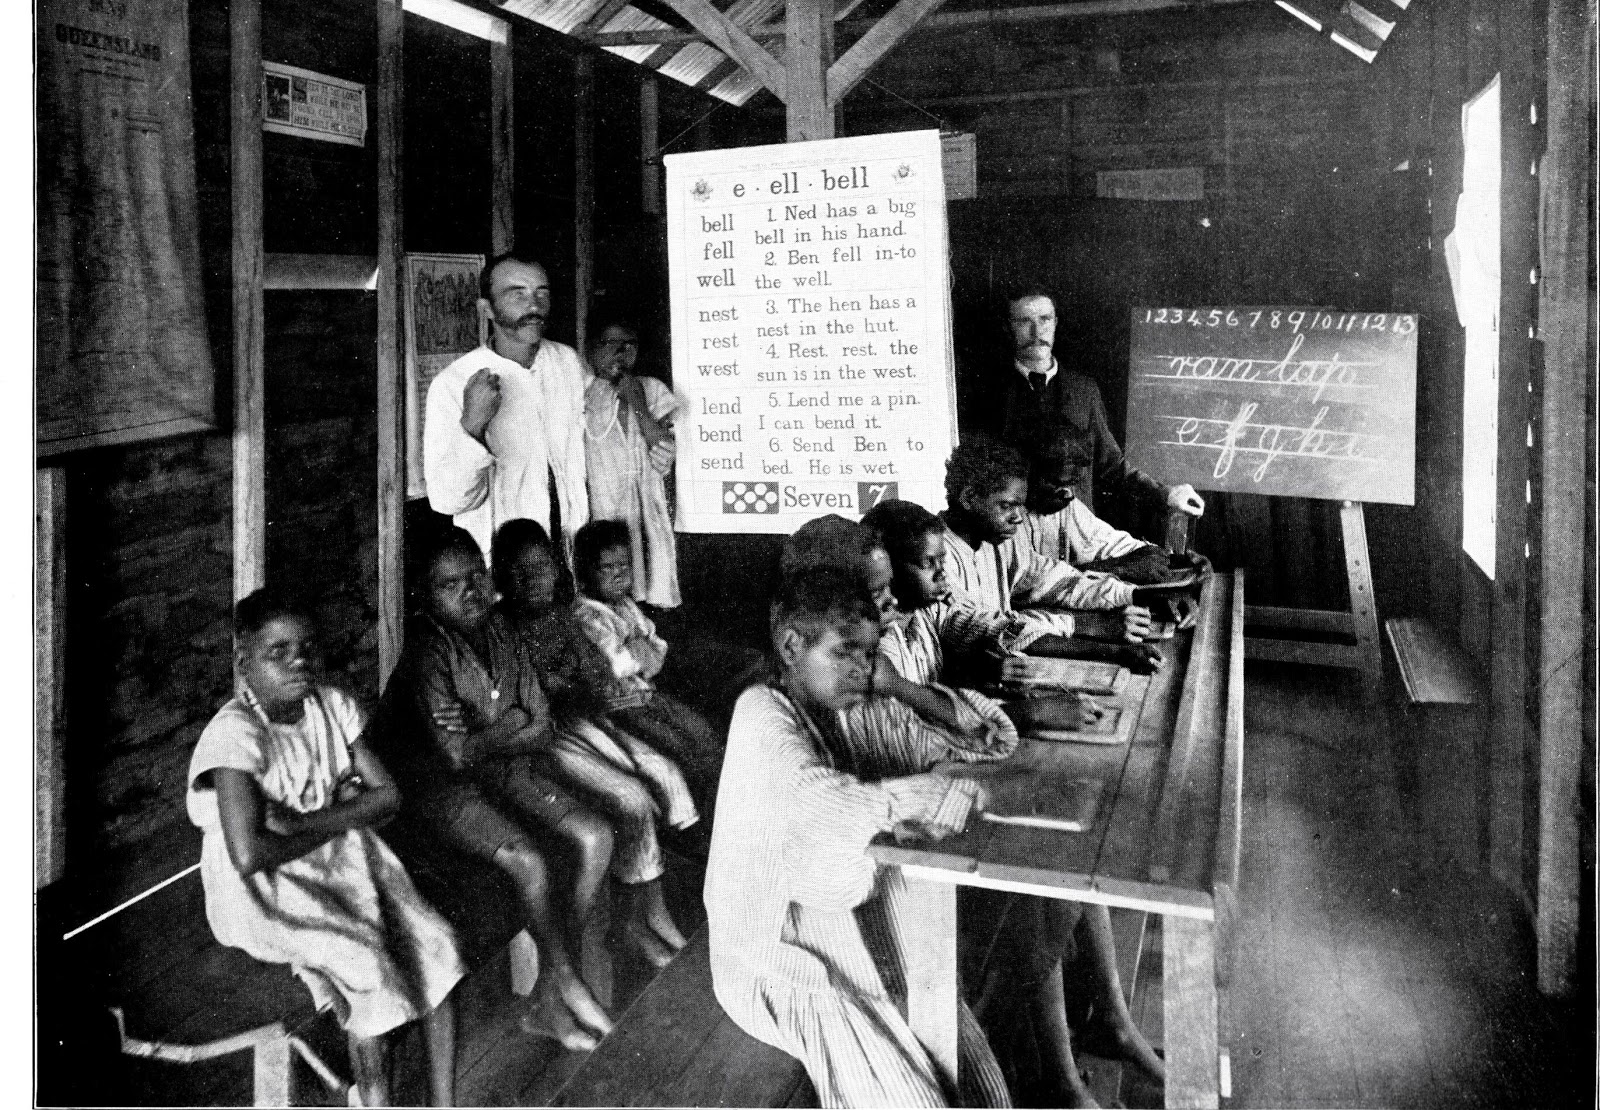 AND
QUEENSLAND
SEEK YE THE LORD
WHILE HE MAY BE
e · ell · bell
bell
fell
well
1. Ned has a big
bell in his hand.
2. Ben fell in-to
the well.
nest
rest
west
3. The hen has a
nest in the hut.
4. Rest. rest. the
sun is in the west.
lend
bend
send
5. Lend me a pin.
I can bend it.
6. Send Ben to
bed. He is wet.
Seven 7
1 2 3 4 5 6 7 8 9 10 11 12 13
ran
e f g h i